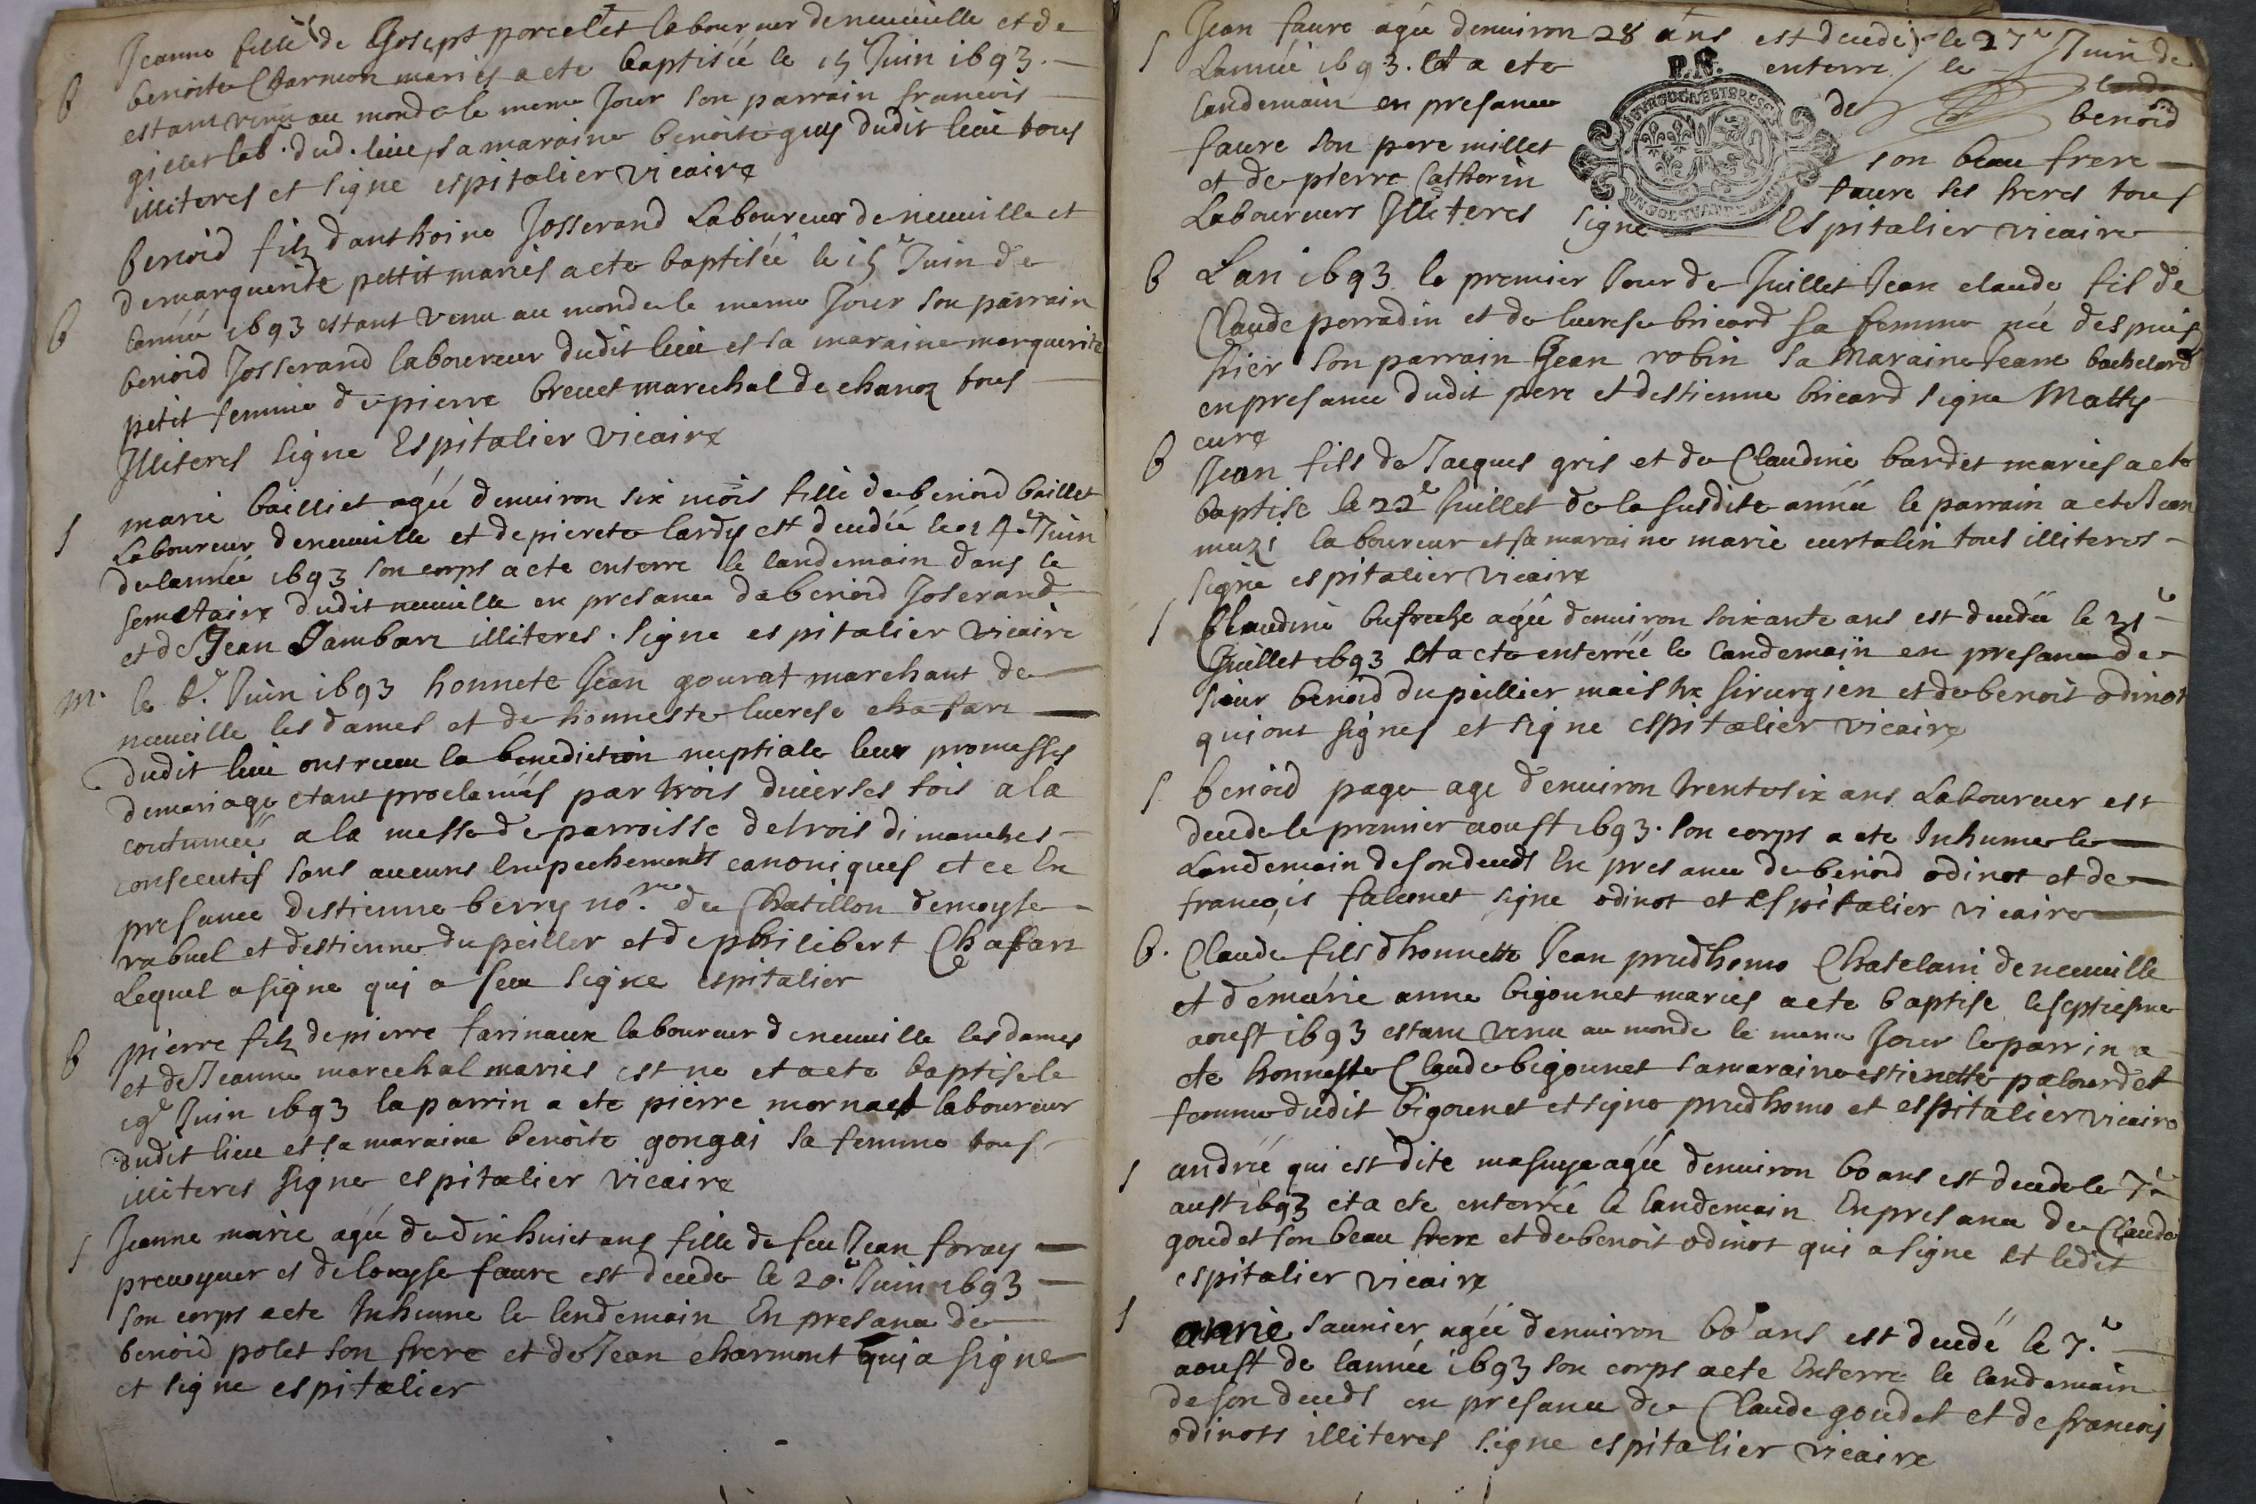 Jeanne fille de Joseph porcelet laboureur de neuuille et de
B
benoite Charmon maries a ete baptisée le 15 Juin 1693
estant venu au monde le meme Jour son parrain francois
gillet lab. dud. lieu, sa maraine benoite guy dudit lieu tous
illiteres et signe espitalier vicaire
benoid filz danthoine Josserand Laboureur de neuuille et
demarguerite pettit maries a ete baptisée le 15e Juin de
B
lannée 1693 estant venu au monde le meme Jour son parrain
benoid Josserand laboureur dudit lieu et sa maraine marguerite
petit femme de pierre breuet marechal de chanoz tous
Illiteres signe Espitalier vicaire
marie bailliet agée denuiron six mois fille de benoid baillet
S
Laboureur deneuuille et de pierete lardy est decedée le 14e Juin
delannée 1693 son corps a ete enterre le landemain dans le
semetaire dudit neuuille en presance de benoid Joserand
et de Jean Jambon illiteres. signe espitalier vicaire
m. le 8e Juin 1693 honnete Jean gourat marchant de
neuuille les dames et de honneste lucrese chafan
dudit lieu ont receu la benediction nuptiale leur promesses
demariage etant proclamés par trois diuerses fois a la
coutumeé a la messe de parroisse de trois dimanches
consecutifs sans aucuns Empechements canoniques et ce En
presance destienne berry nore de Chatillon demoyse
rabuel et destienne dupeiller et de philibert Chafan
Lequel a signe qui a seu signe espitalier
B
pierre filz de pierre farinaux laboureur deneuuille les dames
et de Jeanne marechal maries est ne et a ete baptise le
19e Juin 1693 la parrin a ete pierre mornaet laboureur
dudit lieu et sa maraine benoite gongai sa femme tous
illiteres signe espitalier vicaire
S
Jeanne marie agée de dixhuict ans fille de feu Jean foray
preuoyuer et delouyse faure est decede le 20.e Juin 1693
son corps a ete Inhume le lendemain En presance de
benoid polet son frere et de Jean charmont qui a signe
et signe espitalier
Jean faure agée denuiron 28 ans est decede le 27e Juin de
S
Lannée 1693. et a ete enterre le
landemain en presance de benoid
P.N.
faure son pere millet son beau frere
et de pierre Catherin faure ses freres tous
Laboureurs Illiteres signe Espitalier vicaire
B Lan 1693 le premier Jour de Juillet Jean claude fils de
Claude perradin et de lucrese bricard sa femme né despuis
hier son parrain Jean robin sa Maraine Jeane bachelard
enpresance dudit pere et destienne bricard signe Matty
cure
B
Jean fils de Jacques gris et de Claudine bardet maries a ete
baptise le 22e Juillet de la susdite année le parrain a ete Jean
muzi laboureur et sa maraine marie curtalin tous illiteres
signe espitalier vicaire
S
Claudine agée denuiron soixante ans est decedée le 21e
Juillet 1693 et a ete enterrée le landemain en presance de
sieur benoid dupeillier maistre sirurgien et de benoit odinot
qui ont signes et signe espitalier vicaire
S
benoid page age denuiron trentesix ans Laboureur est
decede le premier aoust 1693. son corps a ete Inhume le
Landemain de son deceds En presance de benoid odinot et de
francois falconet signe odinot et Espitalier vicaire
B. Claude fils dhonnette Jean prudhomo Chatelain de neuuille
et demarie anne bigounet maries a ete baptise leseptiesme
aoust 1693 estant venu au monde le meme Jour le parrin a
ete honneste Claude bigounet sa maraine estienette palourdet
femme dudit bigounet et signe prudhomo et espitalier vicaire
S
andrée qui est dite masuye agée denuiron 60 ans est decede le 7e
aust 1693 et a ete enterrée le landemain Enpresance de Claude
goudet son beau frere et de benoit odinot qui a signe et ledit
espitalier vicaire
S
marie saunier agée denuiron 60 ans est decedé le 7.e
aoust de lannée 1693 son corps a ete Enterre le landemain
de son deceds en presance de Claude goudet et de francois
odinots illiteres signe espitalier vicaire